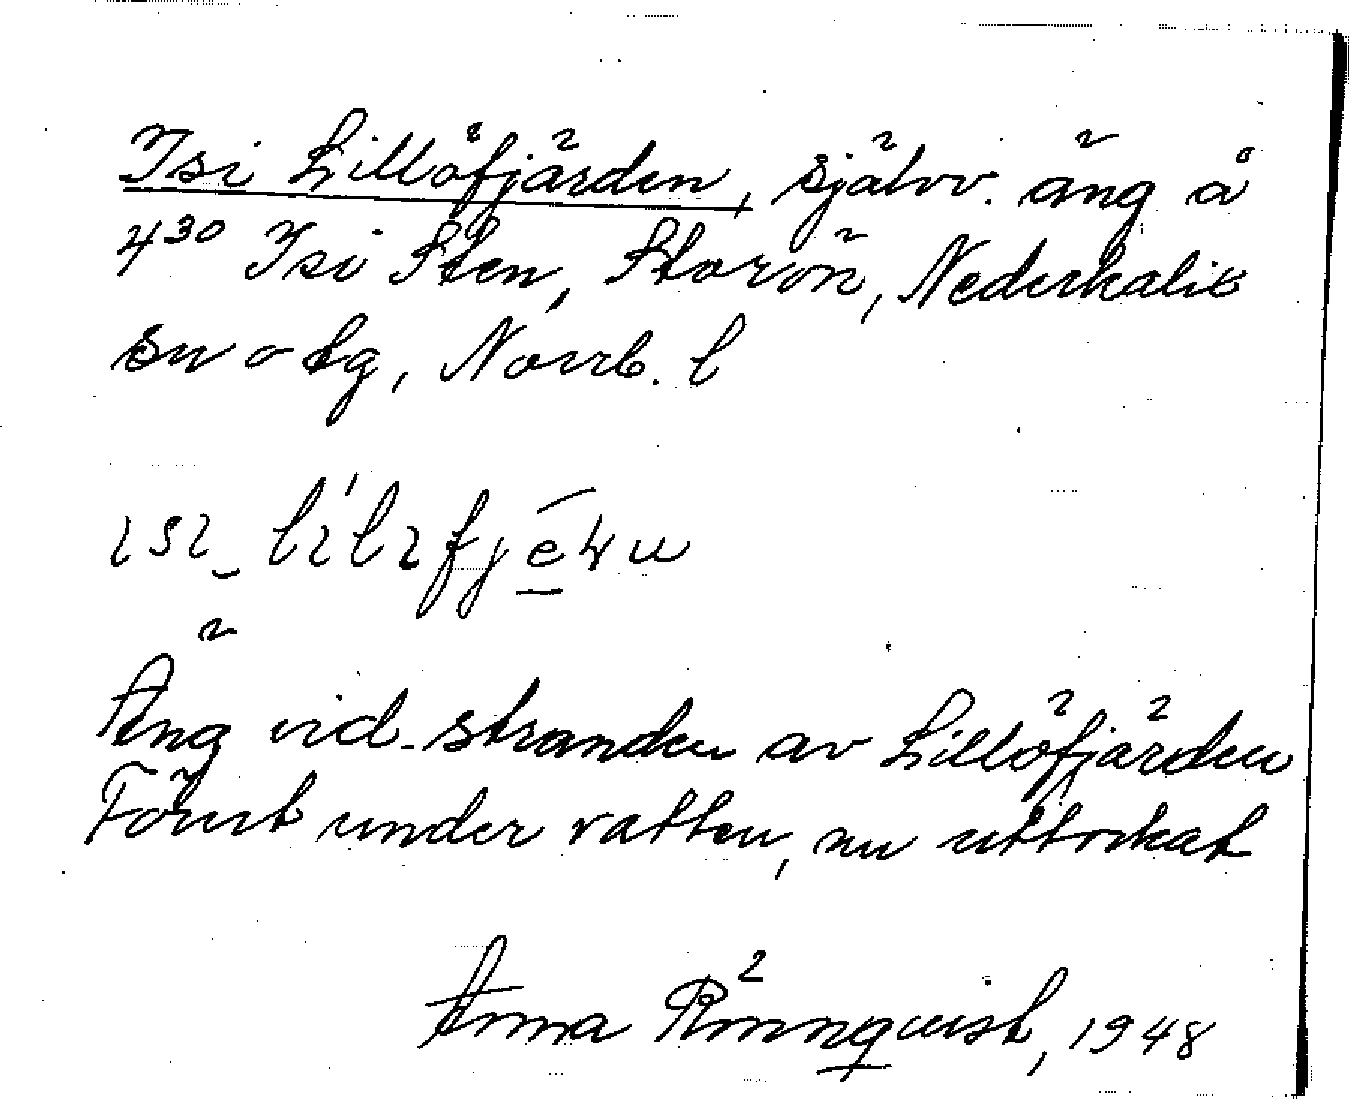 Isi Lillöfjärden, självv. äng å
4³⁰ Isi Sten, Storön, Nederkalix
sn o tg, Norrb. l
ısı lı'lıfjēṇ
Äng vid stranden av Lillöfjärden
Förut under vatten, nu uttorkat
Anna Rönnqvist, 1948